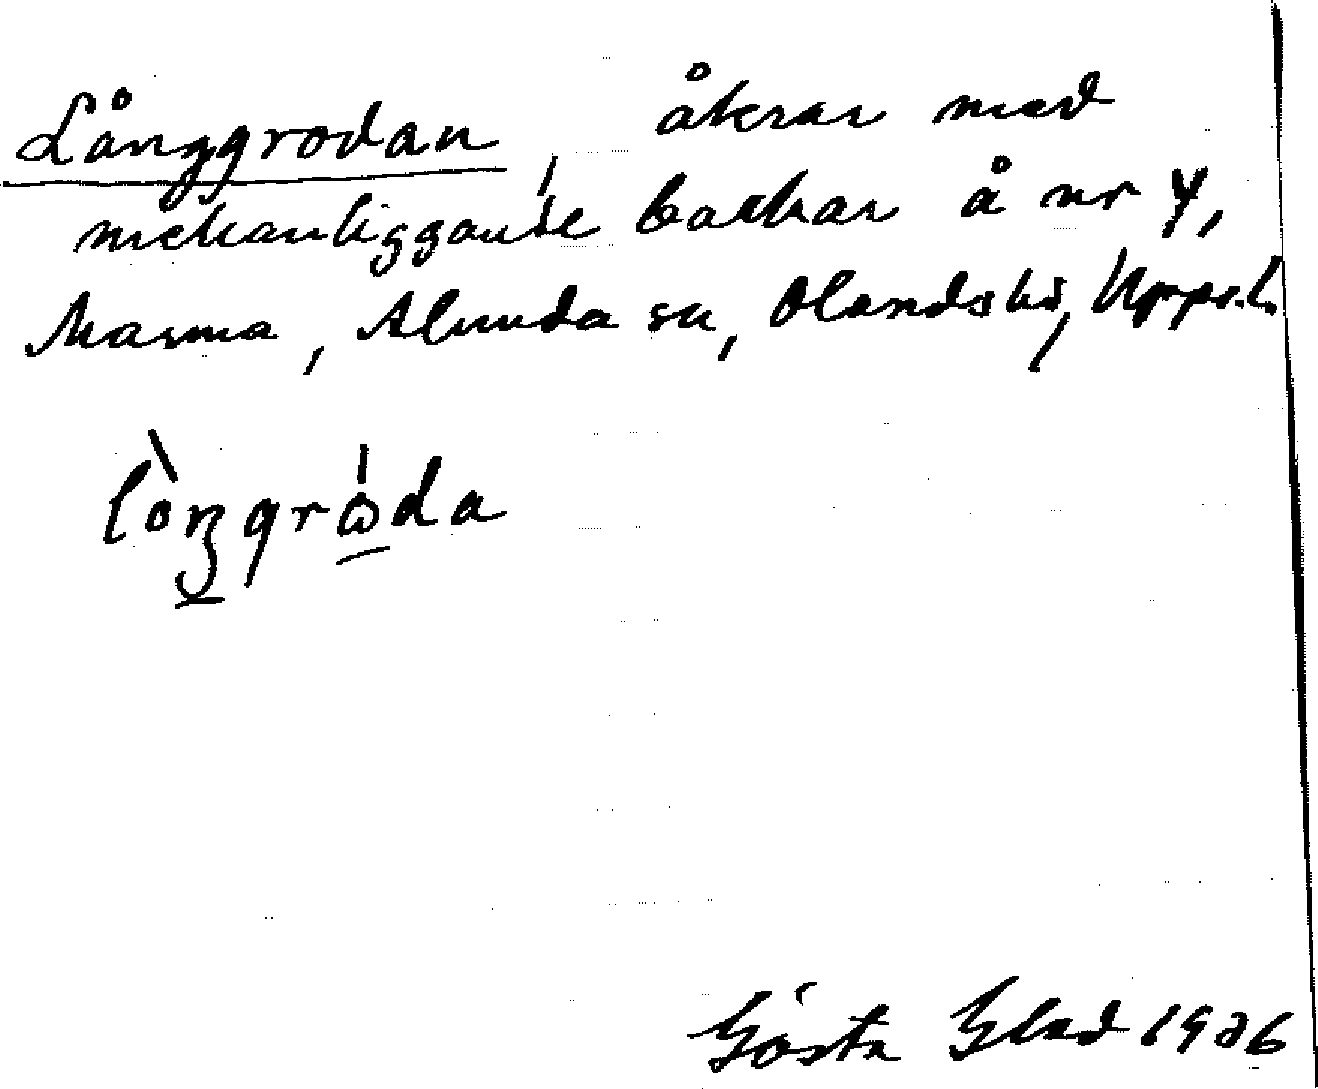 Långgrodan, åkrar med
mellanliggande backar å nr 4,
Marma, Alunda sn, Olands hd, Upps. l.
lòŋgrɷ́da
Gösta Glad 1926